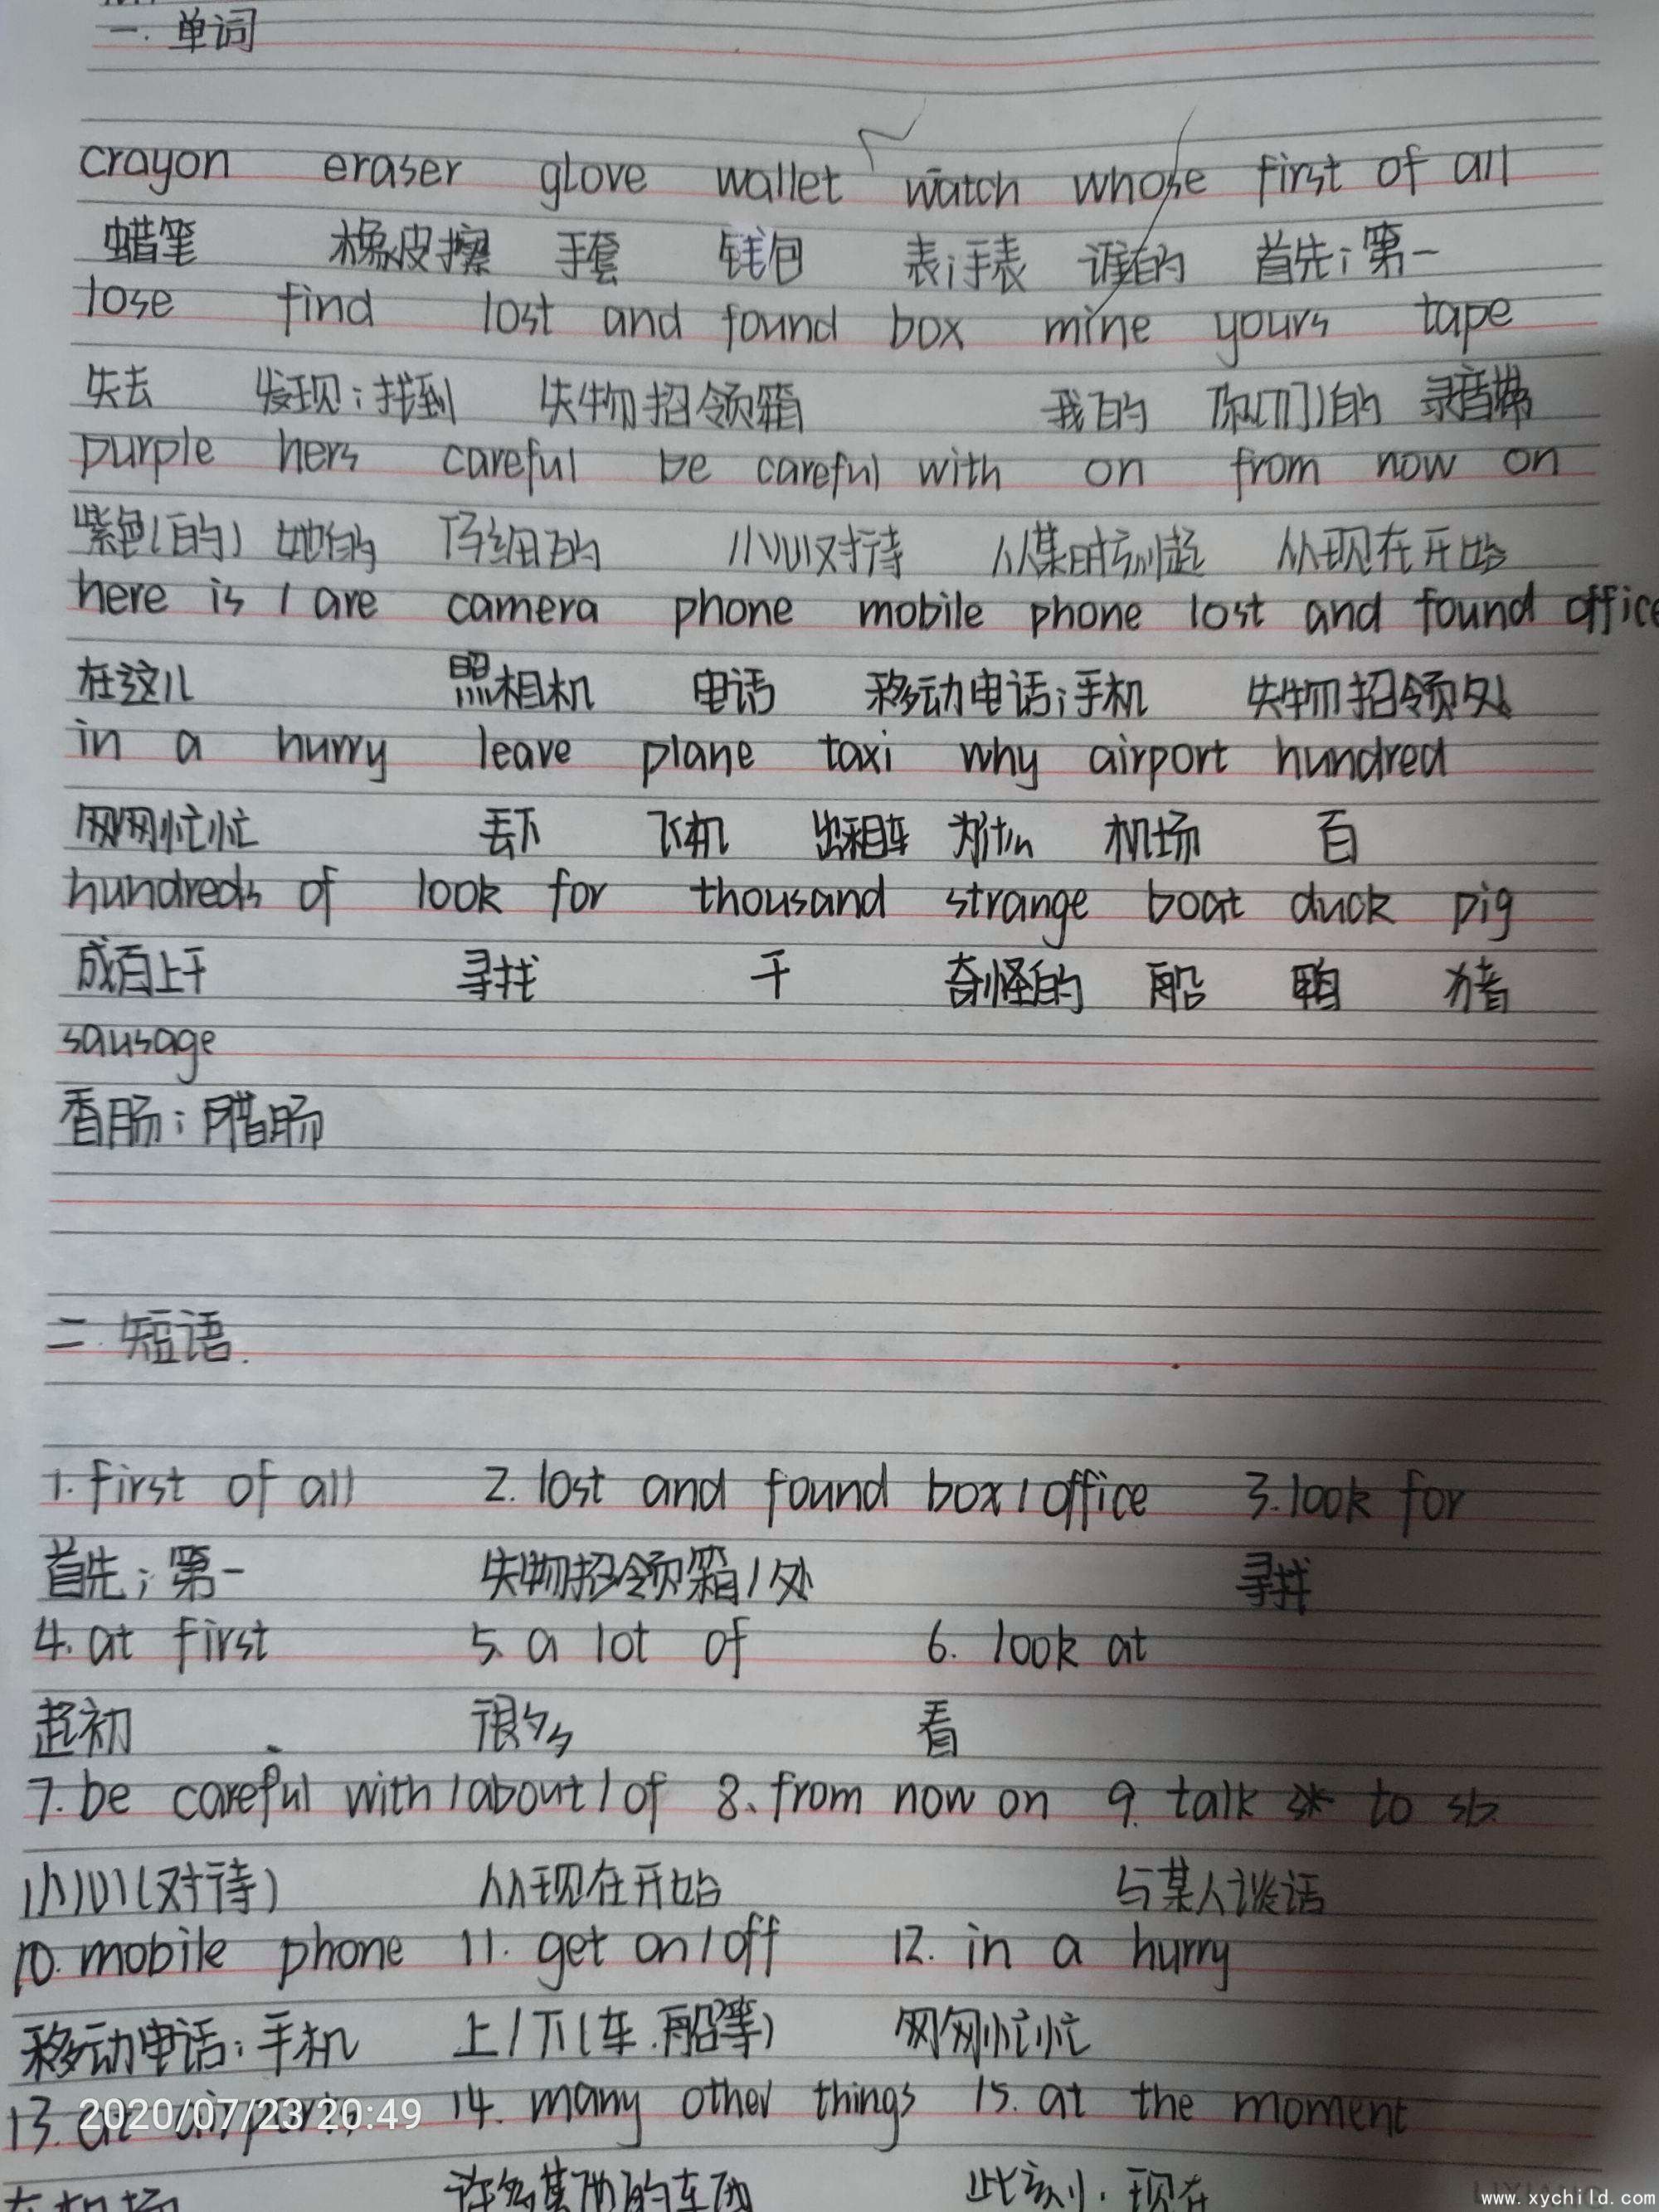 一. 单词
crayon eraser glove wallet watch whose first of all
蜡笔 橡皮擦 手套 钱包 表;手表 谁的 首先;第一
lose find lost and found box mine yours tape
失去 发现;找到 失物招领箱 我的 你们的 录音带
purple hers careful be careful with on from now on
紫色(的) 她的 仔细的 小心对待 从某时刻起 从现在开始
here is / are camera phone mobile phone lost and found office
在这儿 照相机 电话 移动电话;手机 失物招领处
in a hurry leave plane taxi why airport hundred
匆匆忙忙 丢下 飞机 出租车 为什么 机场 百
hundreds of look for thousand strange boat duck pig
成百上千 寻找 千 奇怪的 船 鸭 猪
sausage
香肠;腊肠
二.短语.
1. first of all 2. lost and found box / office 3. look for
首先;第一 失物招领箱/处 寻找
4. at first 5. a lot of 6. look at
起初 很多 看
7. be careful with / about / of 8. from now on 9. talk to sb.
小心(对待) 从现在开始 与某人谈话
10. mobile phone 11. get on / off 12. in a hurry
移动电话;手机 上/下(车.船等) 匆匆忙忙
13. at 14. many other things 15. at the moment
2020/07/23 20:49
在机场 许多其他的东西 此刻;现在
www.xychild.com